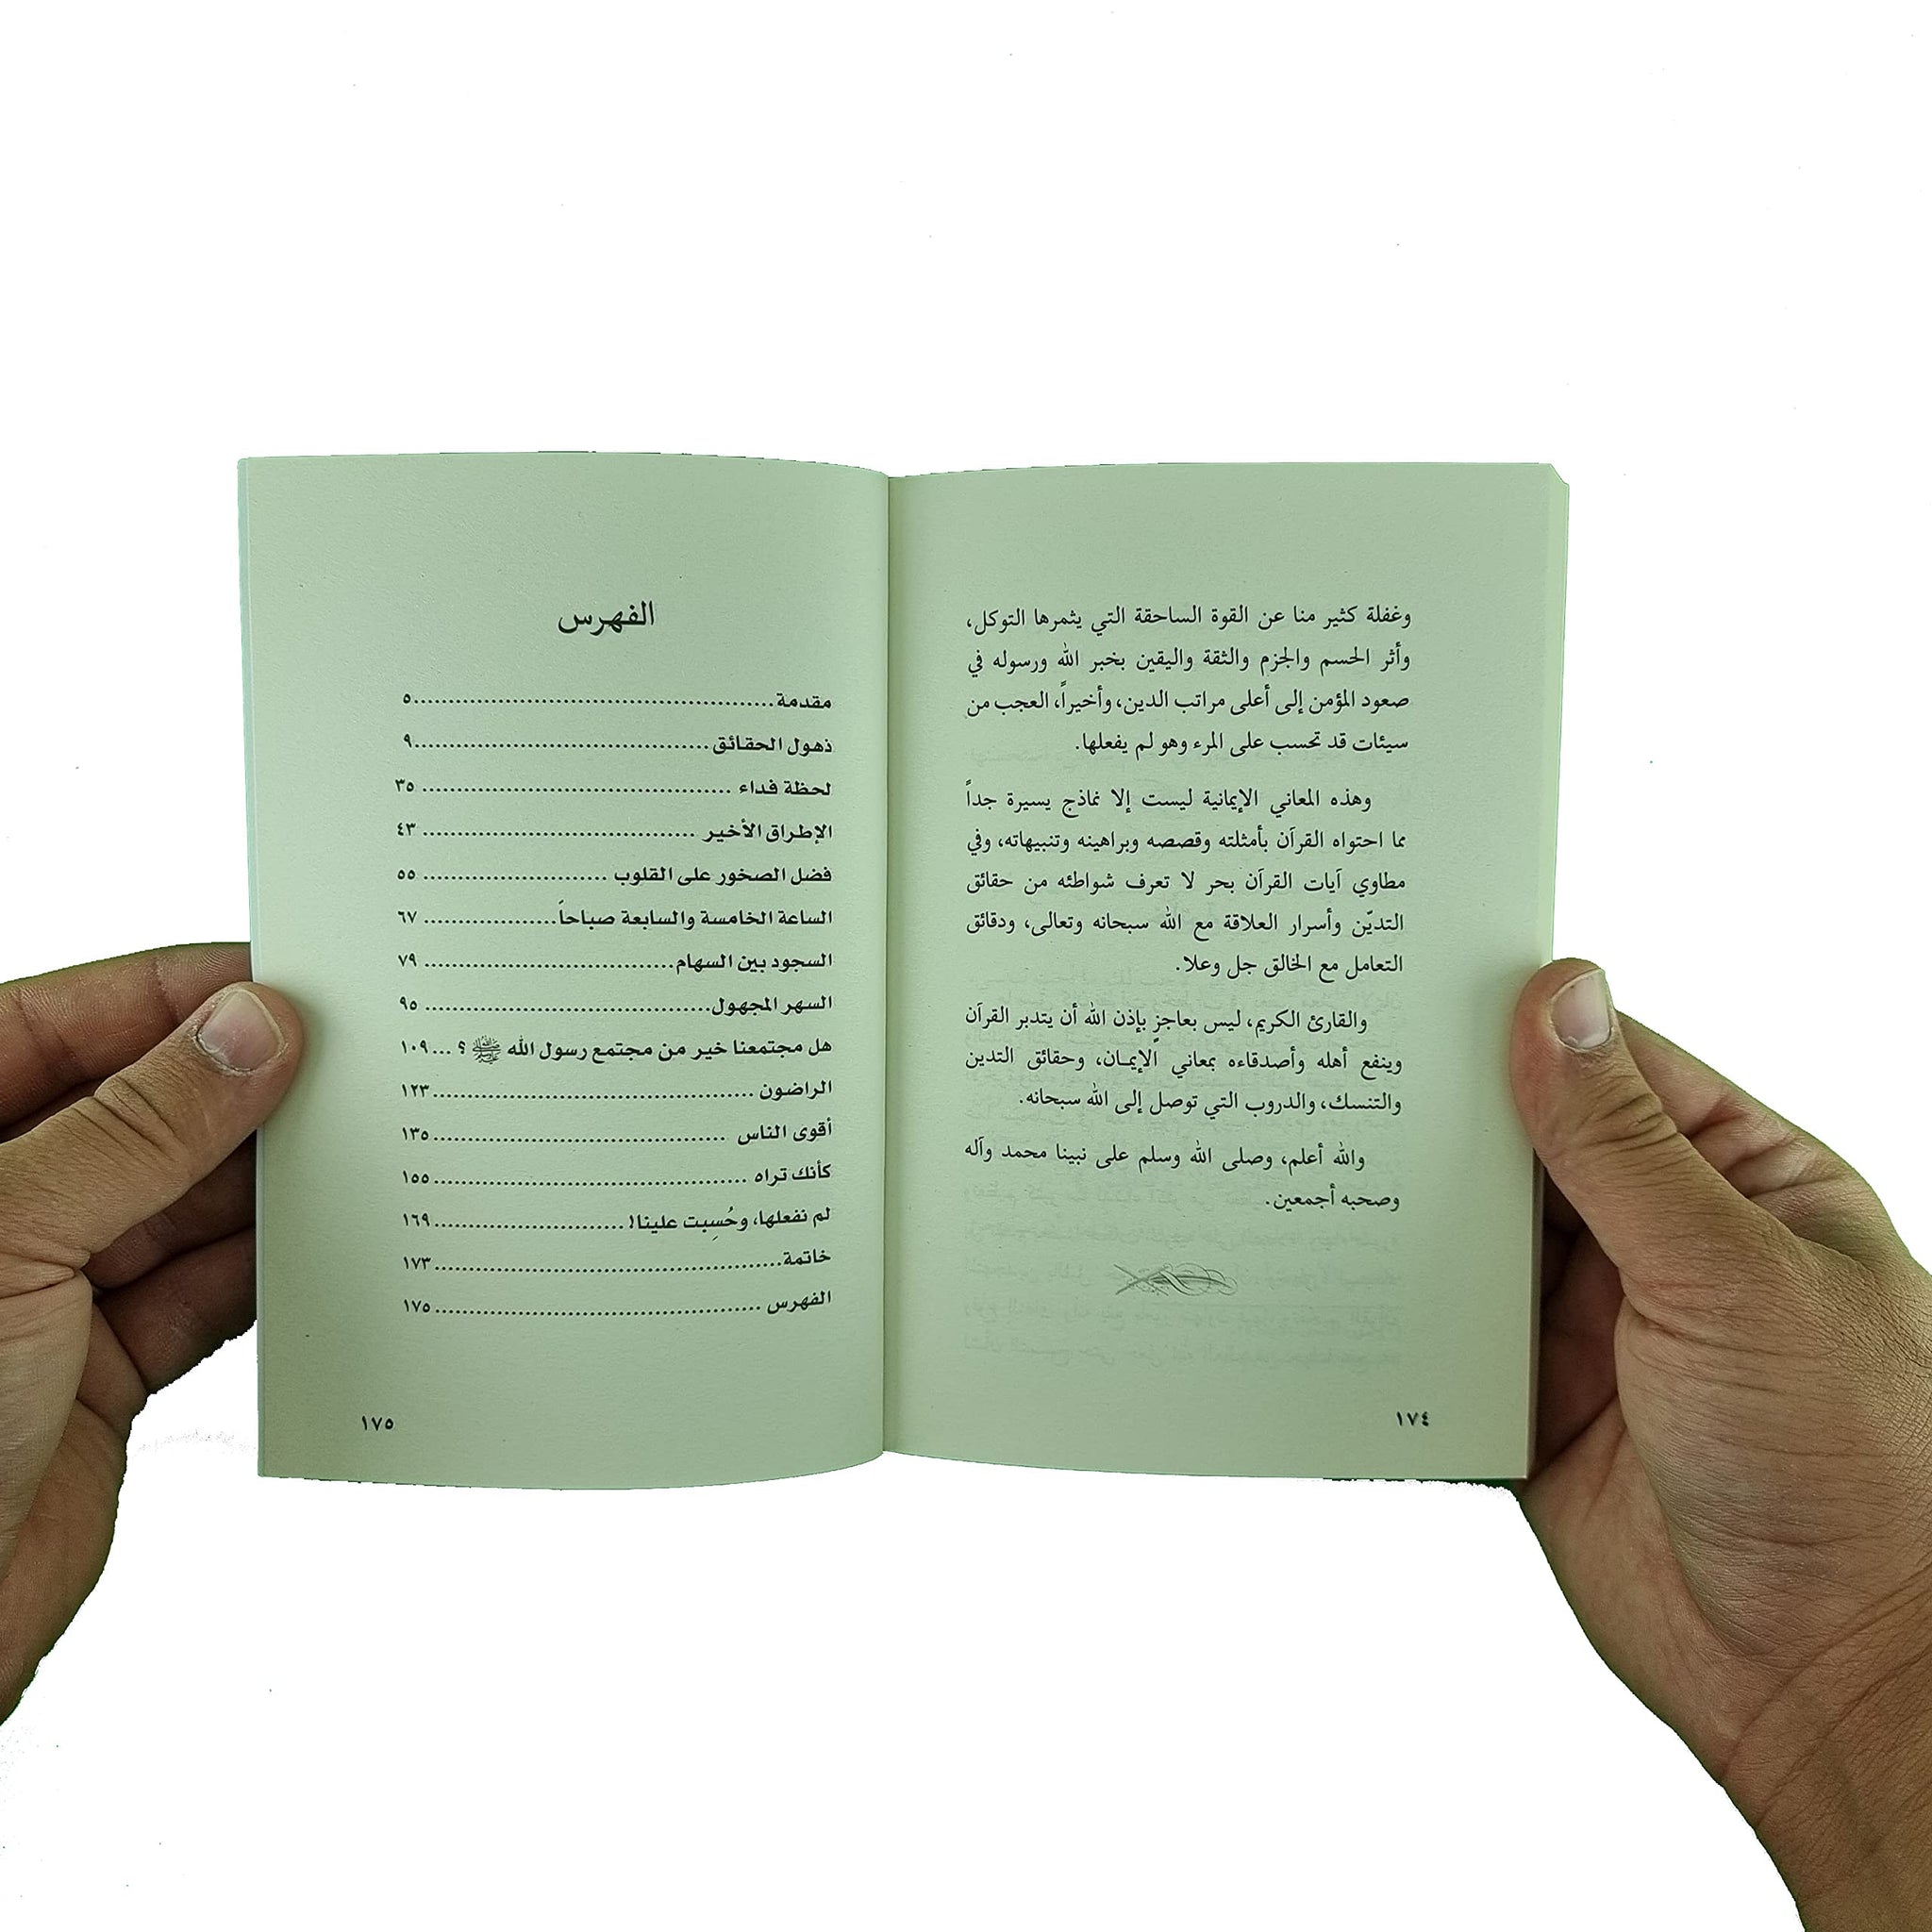 وغفلة كثير منا عن القوة الساحقة التي يثمرها التوكل،
وأثر الحسم والجزم والثقة واليقين بخبر الله ورسوله في
صعود المؤمن إلى أعلى مراتب الدين، وأخيراً، العجب من
سيئات قد تحسب على المرء وهو لم يفعلها.
وهذه المعاني الإيمانية ليست إلا نماذج يسيرة جداً
مما احتواه القرآن بأمثلته وقصصه وبراهينه وتنبيهاته، وفي
مطاوي آيات القرآن بحر لا تعرف شواطئه من حقائق
التديّن وأسرار العلاقة مع الله سبحانه وتعالى، ودقائق
التعامل مع الخالق جل وعلا.
والقارئ الكريم، ليس بعاجزٍ بإذن الله أن يتدبر القرآن
وينفع أهله وأصدقاءه بمعاني الإيمان، وحقائق التدين
والتنسك، والدروب التي توصل إلى الله سبحانه.
والله أعلم، وصلى الله وسلم على نبينا محمد وآله
وصحبه أجمعين.
١٧٤
الفهرس
مقدمة...........................................٥
ذهول الحقائق...................................٩
لحظة فداء .................................... ٣٥
الإطراق الأخير ................................ ٤٣
فضل الصخور على القلوب ...................... ٥٥
الساعة الخامسة والسابعة صباحاً................... ٦٧
السجود بين السهام............................. ٧٩
السهر المجهول................................. ٩٥
هل مجتمعنا خير من مجتمع رسول الله ﷺ ؟ ...١٠٩
الراضون ......................................١٢٣
أقوى الناس ...................................١٣٥
كأنك تراه .....................................١٥٥
لم نفعلها، وحُسِبت علينا! .......................١٦٩
خاتمة.........................................١٧٣
الفهرس .......................................١٧٥
١٧٥